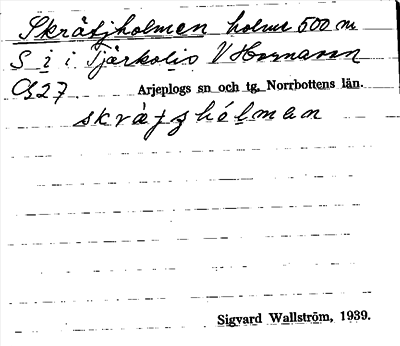 Skråtjholmen holme 500 m
S i i Tjärkolis V Hornavan
G27. Arjeplogs sn och tg. Norrbottens län.
skråtjhólman
Sigvard Wallström, 1939.